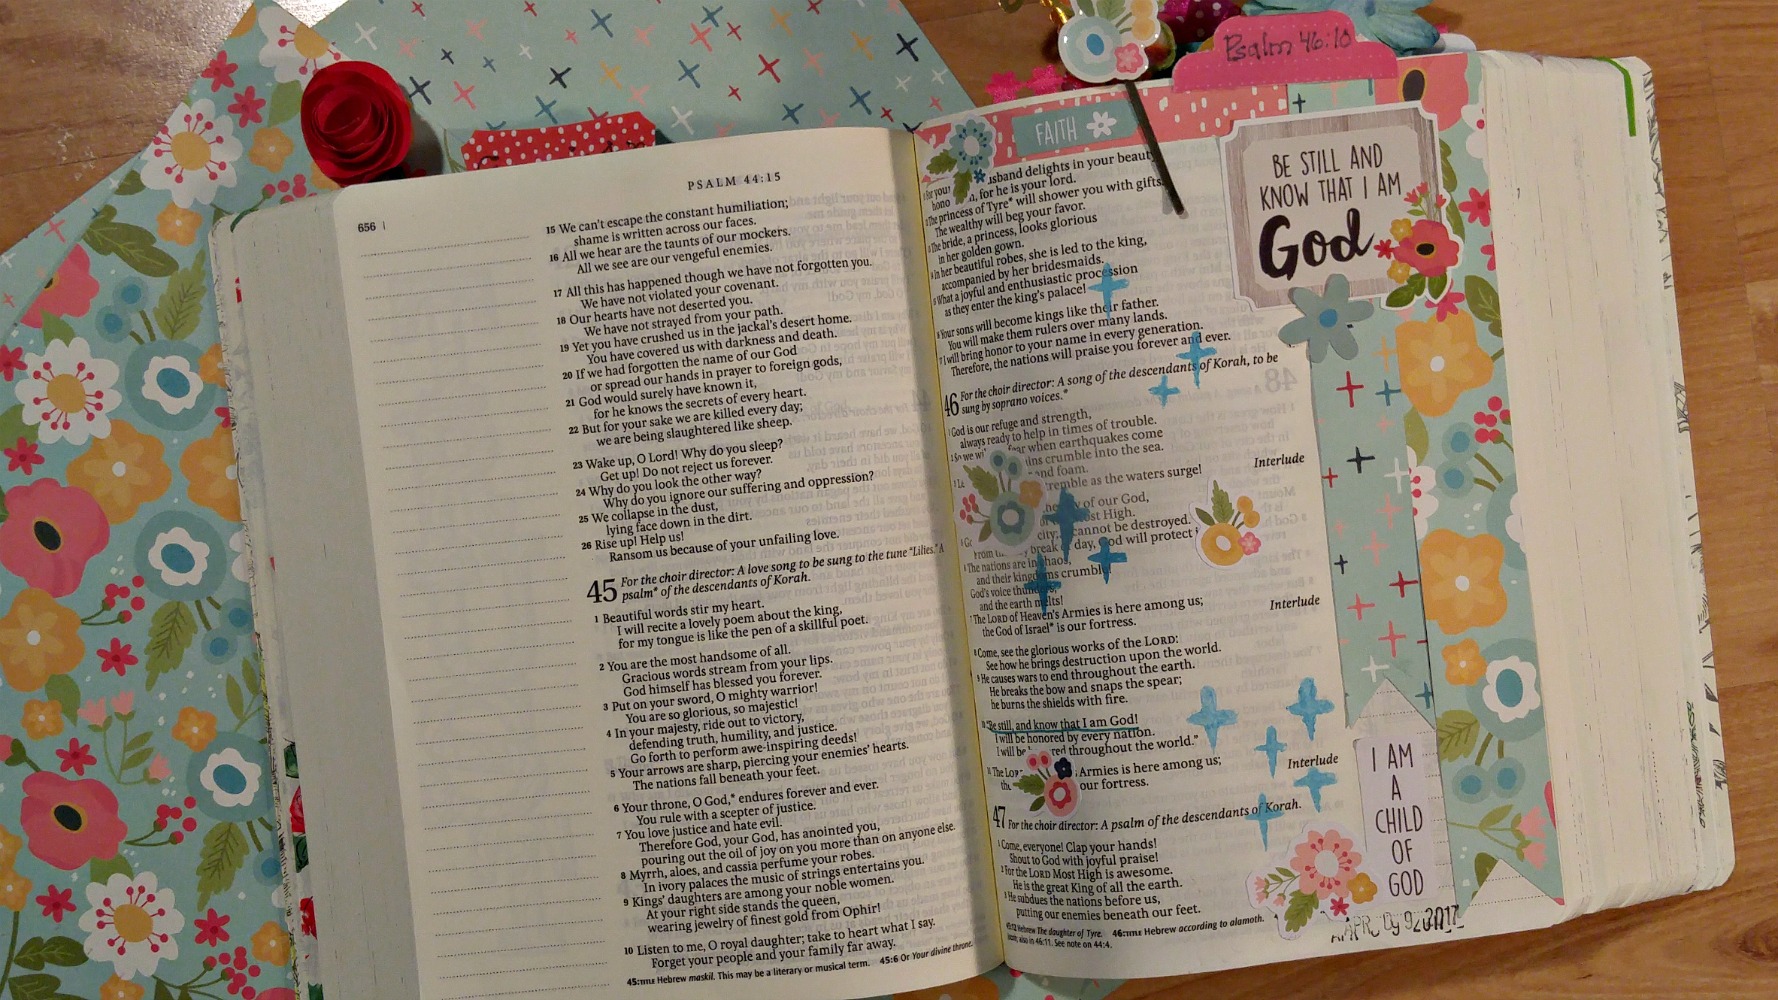 PSALM 44:15
656
15 We can't escape the constant humiliation;
shame is written across our faces.
16 All we hear are the taunts of our mockers.
All we see are our vengeful enemies.
17 All this has happened though we have not forgotten you.
We have not violated your covenant.
18 Our hearts have not deserted you.
We have not strayed from your path.
19 Yet you have crushed us in the jackal's desert home.
You have covered us with darkness and death.
20 If we had forgotten the name of our God
or spread our hands in prayer to foreign gods,
21 God would surely have known it,
for he knows the secrets of every heart.
22 But for your sake we are killed every day;
we are being slaughtered like sheep.
23 Wake up, O Lord! Why do you sleep?
Get up! Do not reject us forever.
24 Why do you look the other way?
Why do you ignore our suffering and oppression?
25 We collapse in the dust,
lying face down in the dirt.
26 Rise up! Help us!
Ransom us because of your unfailing love.
45 For the choir director: A love song to be sung to the tune "Lilies." A
psalm* of the descendants of Korah.
1 Beautiful words stir my heart.
I will recite a lovely poem about the king,
for my tongue is like the pen of a skillful poet.
2 You are the most handsome of all.
Gracious words stream from your lips.
God himself has blessed you forever.
3 Put on your sword, O mighty warrior!
You are so glorious, so majestic!
4 In your majesty, ride out to victory,
defending truth, humility, and justice.
Go forth to perform awe-inspiring deeds!
5 Your arrows are sharp, piercing your enemies' hearts.
The nations fall beneath your feet.
6 Your throne, O God,* endures forever and ever.
You rule with a scepter of justice.
7 You love justice and hate evil.
Therefore God, your God, has anointed you,
pouring out the oil of joy on you more than on anyone else.
8 Myrrh, aloes, and cassia perfume your robes.
In ivory palaces the music of strings entertains you.
9 Kings' daughters are among your noble women.
At your right side stands the queen,
wearing jewelry of finest gold from Ophir!
10 Listen to me, O royal daughter; take to heart what I say.
Forget your people and your family far away.
45:TITLE Hebrew maskil. This may be a literary or musical term. 45:6 Or Your divine throne.
Psalm 46:10
FAITH
For your husband delights in your beauty
for he is your lord.
The princess of Tyre* will shower you with gifts.
The wealthy will beg your favor.
The bride, a princess, looks glorious
in her golden gown.
In her beautiful robes, she is led to the king,
accompanied by her bridesmaids.
What a joyful and enthusiastic procession
as they enter the king's palace!
Your sons will become kings like their father.
You will make them rulers over many lands.
I will bring honor to your name in every generation.
Therefore, the nations will praise you forever and ever.
46 For the choir director: A song of the descendants of Korah, to be
sung by soprano voices.*
1 God is our refuge and strength,
always ready to help in times of trouble.
So we will fear when earthquakes come
crumble into the sea.
and foam.
tremble as the waters surge! Interlude
of our God,
Most High.
city; cannot be destroyed.
From break of day, God will protect
The nations are in chaos,
and their kingdoms crumble!
God's voice thunders,
and the earth melts!
The LORD of Heaven's Armies is here among us;
the God of Israel* is our fortress. Interlude
Come, see the glorious works of the LORD:
See how he brings destruction upon the world.
He causes wars to end throughout the earth.
He breaks the bow and snaps the spear;
he burns the shields with fire.
"Be still, and know that I am God!
I will be honored by every nation.
I will be throughout the world."
The Armies is here among us;
our fortress. Interlude
47 For the choir director: A psalm of the descendants of Korah.
1 Come, everyone! Clap your hands!
Shout to God with joyful praise!
2 For the LORD Most High is awesome.
He is the great King of all the earth.
3 He subdues the nations before us,
putting our enemies beneath our feet.
45:12 Hebrew The daughter of Tyre. 46:TITLE Hebrew according to alamoth.
also in 46:11. See note on 44:4.
BE STILL AND
KNOW THAT I AM
God
I AM
A
CHILD
OF
GOD
APR 09 2017